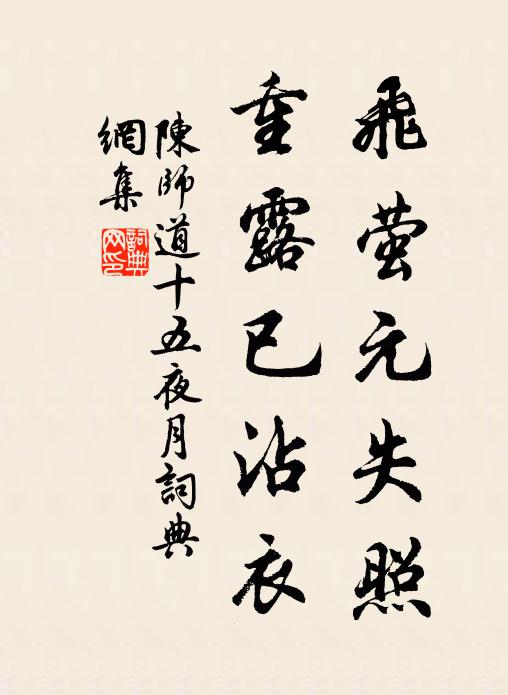 飛萤元失照
重露已沾衣
陳師道十五夜月詞典
網集
詞典网印